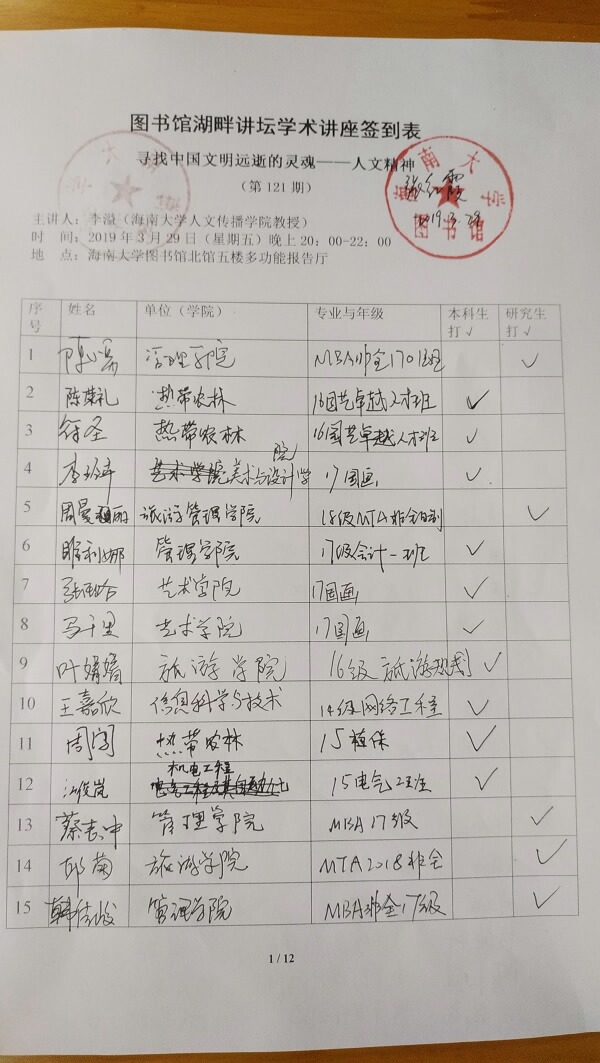 图书馆湖畔讲坛学术讲座签到表
寻找中国文明远逝的灵魂——人文精神
（第 121 期）
海南大学
图书馆
张红霞
2019.3.29
主讲人：李溢（海南大学人文传播学院教授）
时 间：2019 年 3 月 29 日（星期五）晚上 20：00-22：00
地 点：海南大学图书馆北馆五楼多功能报告厅
序号 姓名 单位（学院） 专业与年级 本科生打√ 研究生打√
1 管理学院 MBA非全1701班 √
2 陈荣礼 热带农林 16园艺卓越人才班 √
3 符圣 热带农林 16园艺卓越人才班 √
4 艺术学院美术与设计学院 17国画 √
5 周曼丽 旅游管理学院 18级MTA非全日制 √
6 睢利娜 管理学院 17级会计一班 √
7 艺术学院 17国画 √
8 马千里 艺术学院 17国画 √
9 叶婧婧 旅游学院 16级旅游规划 √
10 王嘉欣 信息科学与技术 14级网络工程 √
11 周宇 热带农林 15植保 √
12 汪俊岚 机电工程 15电气工程 √
13 蔡志中 管理学院 MBA17级 √
14 邱菊 旅游学院 MTA2018非全 √
15 管理学院 MBA非全17级 √
1 / 12